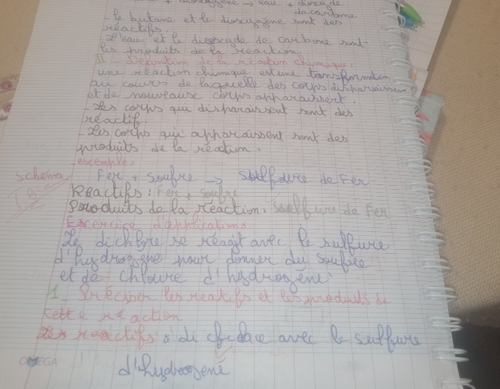 + dioxygène → eau + dioxyde
de carbone
- le butane et le dioxygène sont des
réactifs.
- L'eau et le dioxyde de carbone sont
les produits de la reaction
II - Définition de la réaction chimique:
une réaction chimique est une transformation
au cours de laquelle des corps disparaissent
et de nouveaux corps apparaissent.
- Les corps qui disparaissent sont des
réactif.
- Les corps qui apparaissent sont des
produits de la réation.
exemple:
Schema
Fer + Soufre → Sulfure de Fer
Réactifs: Fer + Soufre
Produits de la réaction: Sulfure de Fer
Exercice d'applications
Le dichlore se réagit avec le sulfure
d'hydrogène pour donner du Soufre
et de chloure d'hydrogène
1 - Préciser les reatifs et les produits de
cette réaction
Les reactifs: di avec le sulfure
d'hydrogène